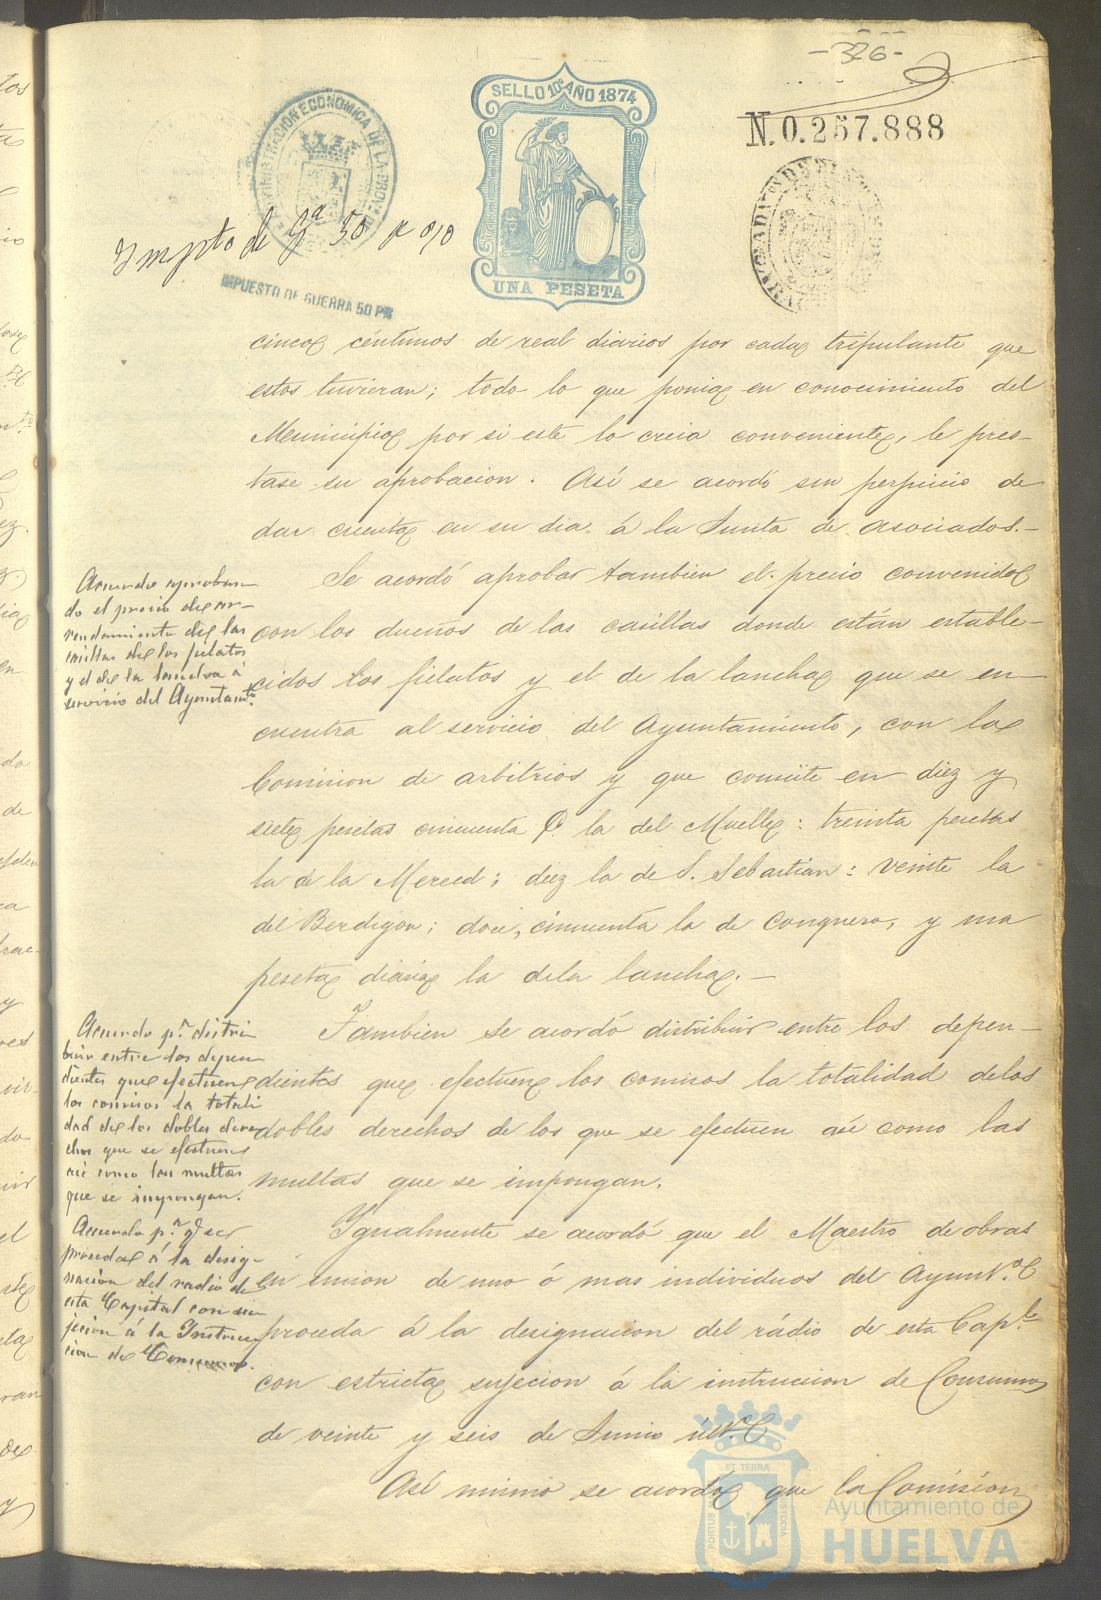 -326-
SELLO 10º AÑO 1874
UNA PESETA
N.0.257.888
ADMINISTRACION ECONOMICA DE LA PROV
Impto de Gª 50 p 0/0
IMPUESTO DE GUERRA 50 PR
cinco céntimos de real diarios por cada tripulante que
estos tuvieran; todo lo que ponia en conocimiento del
Municipio por si este lo creia conveniente, le pres-
tase su aprobacion. Así se acordó sin perjuicio de
dar cuenta en su dia á la Junta de asociados.-
Acuerdo aproban-
do el precio de ar-
rendamiento de las
casillas de los fielatos
y el de la lancha á
servicio del Ayuntamto.
Se acordó aprobar tambien el precio convenido
con los dueños de las casillas donde están estable-
cidos los fielatos y el de la lancha que se en-
cuentra al servicio del Ayuntamiento, con la
Comision de arbitrios y que consiste en diez y
siete pesetas cincuenta la del Muelle: treinta pesetas
la de la Merced; diez la de S. Sebastian: veinte la
del Berdigon; doce, cincuenta la de Conquero, y una
peseta diaria la de la lancha.-
Acuerdo p.ª distri
buir entre los depen
dientes que efectuen
los comisos la totali
dad de los dobles dere
chos que se efectuen
asi como las multas
que se impongan.
Tambien se acordó distribuir entre los depen-
dientes que efectuen los comisos la totalidad delos
dobles derechos de los que se efectuen así como las
multas que se impongan.
Acuerdo p.ª q.e se
proceda á la desig-
nacion del radio de
esta Capital con su
jecion á la Instruc
cion de Consumos.
Igualmente se acordó que el Maestro de obras
en union de uno ó mas individuos del Ayunt.º
proceda á la designacion del rádio de esta Cap.le
con estricta sujecion á la instruccion de Consumos
de veinte y seis de Junio últ.º
Así mismo se acordó que la Comisión
ET TERRÆ
PORTUS
CUSTODIA
Ayuntamiento de
HUELVA